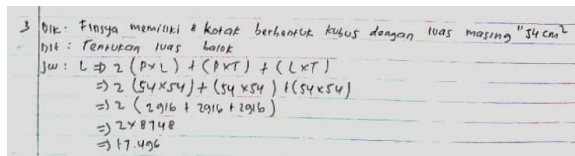 3 Dik: Finsya memiliki 8 kotak berbentuk kubus dengan luas masing" 54 cm²
Dit : Tentukan luas balok
Jw : L => 2 (PxL) + (PxT) + (LxT)
=> 2 (54x54) + (54 x54) + (54x54)
=> 2 (2916 + 2916 + 2916)
=> 2x8748
=> 17.496